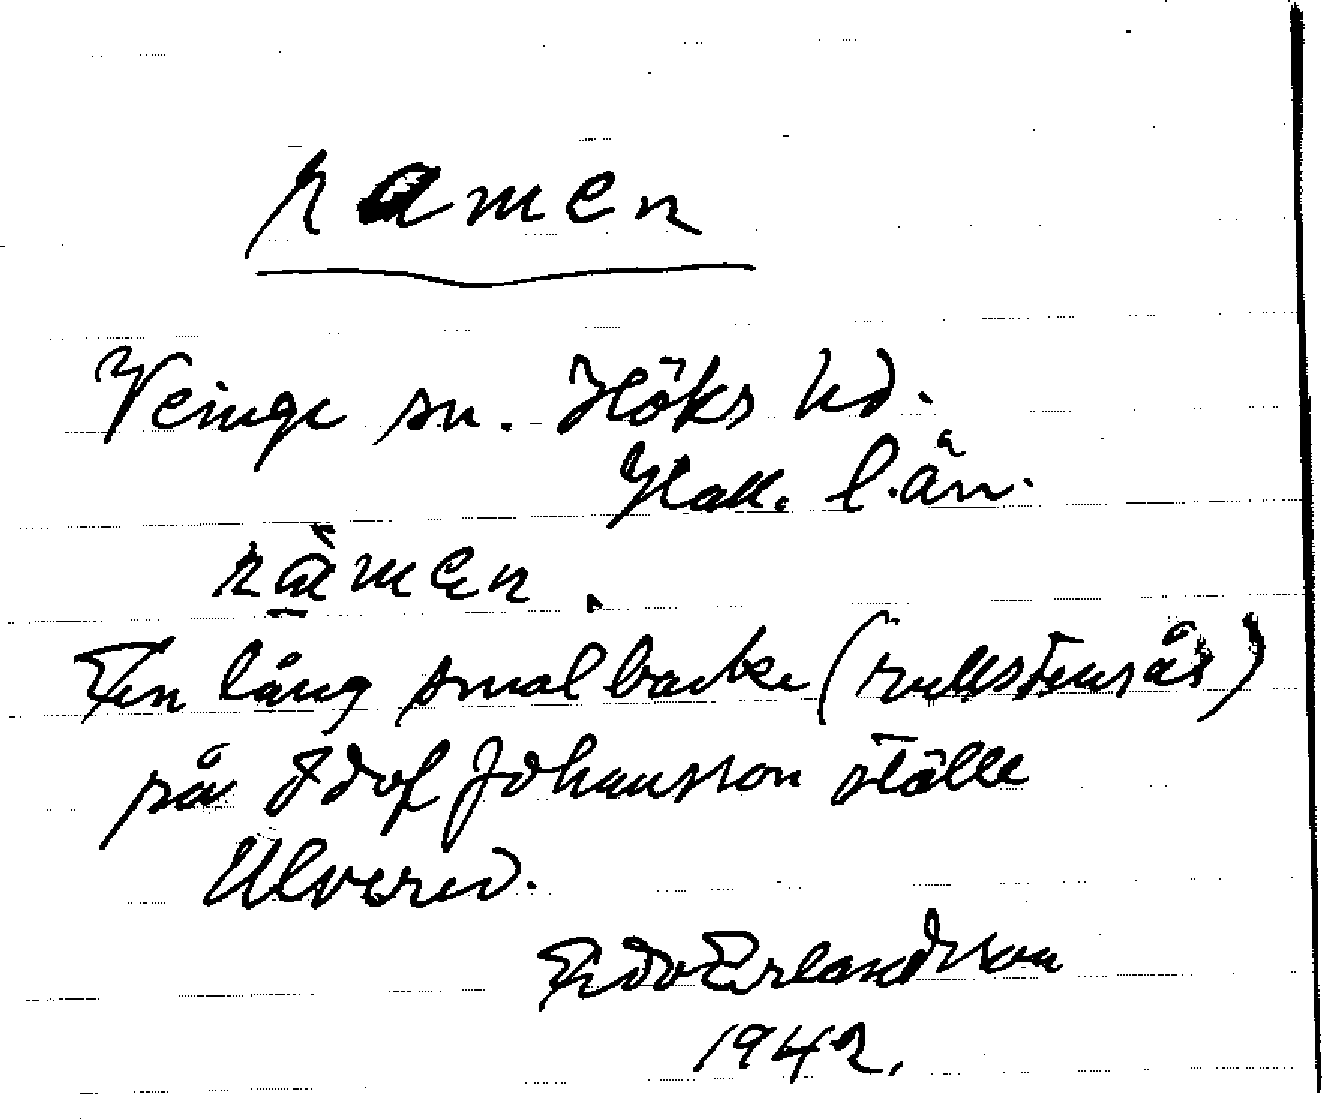 ramen
Veinge sn. Höks hd.
Hall. län.
rämen.
En lång smal backe (rullstensås)
på Adof Johansson ställe
Ulvered.
Edv Erlandsson
1942.